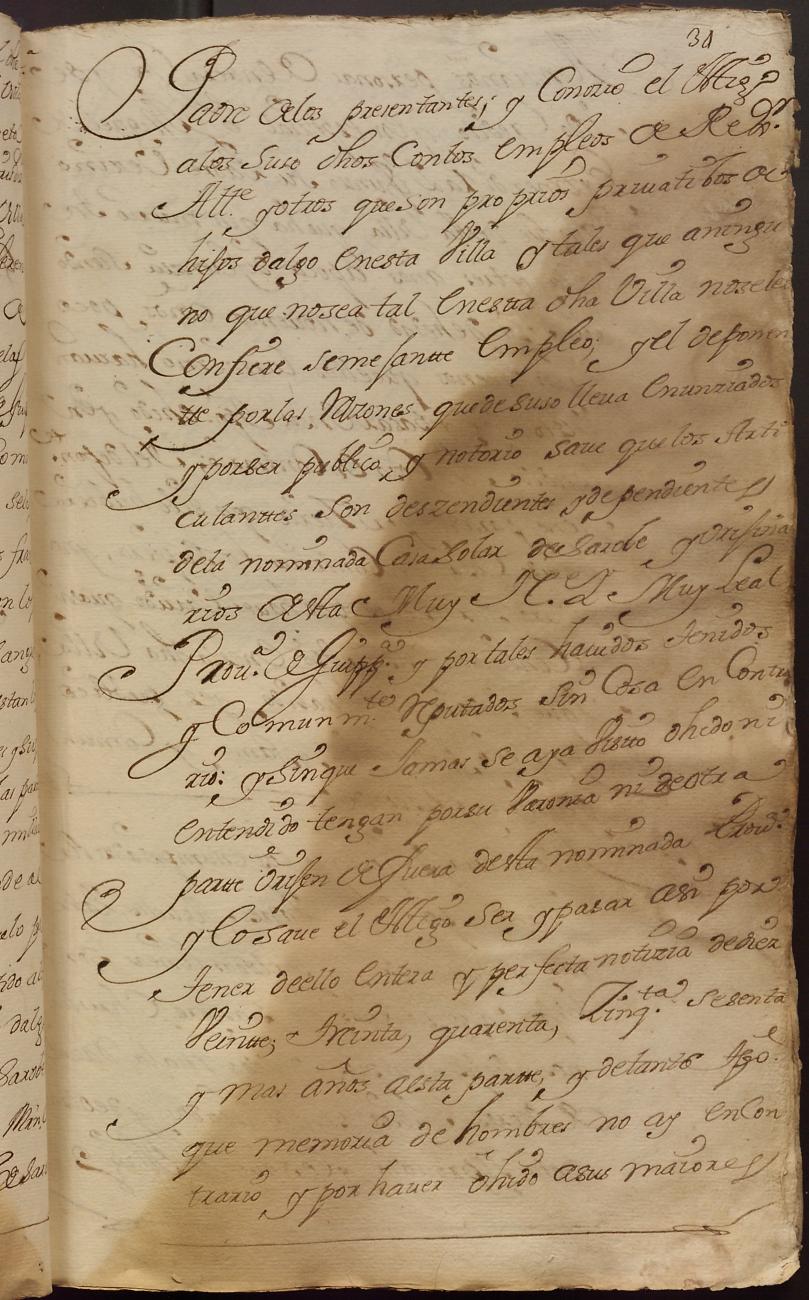 34
Padre delos presentantes; y Conozio el testigo
alos suso dhos Contos empleos de Redr.
Altte. y otros que son proprios priuatibos de
hijos dalgo enesta Villa y tales que aningu
no que nosea tal enestta dha Villa nosele
Confiere semejantte empleo; y el deponen
tte por las Razones que de suso lleva enunziados
y porser publico, y notorio saue que los Arti
culanttes son deszendientes y dependientes
dela nominada Casa solar de Sarobe y orijina
rios desta Muy N. L. Muy Leal
Prou.a de Guipp.a y por tales hauidos tenidos
y Comunm.te Reputados sin Cosa en Contra
rio: y sinque Jamas se aya Visto ohido ni
entendido tengan porsu Varonia ni de otra
partte orijen de fuera desta nominada Prou.a
y Lo saue el testigo ser y pasar asi por
tener deello entera y perfecta notizia de diez
Veintte; treinta, quarenta, Zinq.ta sesenta
y mas años aesta partte, y detanto tpo.
que memoria de hombres no ay encon
trario y por hauer ohido asus maiores